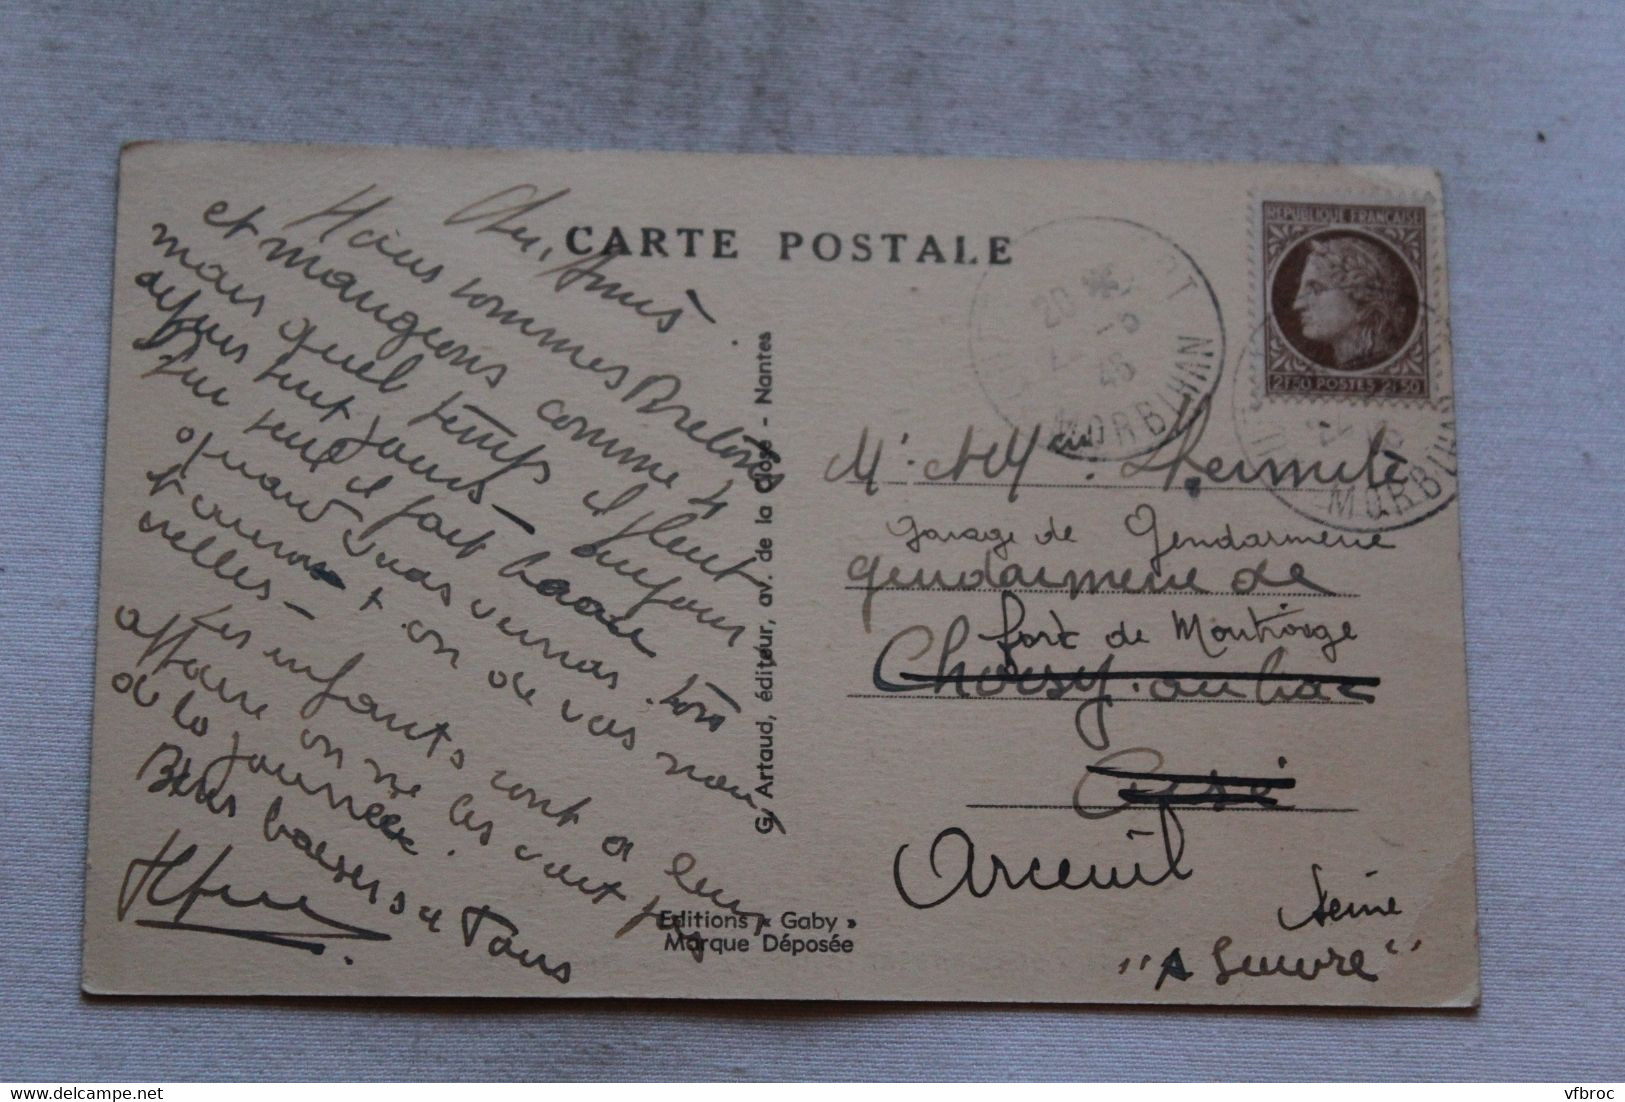 CARTE POSTALE
Chers Amis
Nous sommes Bretons
et mangeons comme 4
mais quel temps il pleut
depuis huit jours - aujour
hui seul il fait beau
quand vous verrons
t on de vos nou
velles -
Les enfants sont a leur
affaire on ne les voit pas
de la journée.
Bons baisers a Tous
G. Artaud, éditeur, av. de la Close - Nantes
Editions « Gaby »
Marque Déposée
REPUBLIQUE FRANÇAISE
2F50 POSTES 2F50
20
46
MORBIHAN
MORBIHAN
Garage de Gendarmerie
Gendarmerie de
fort de Montrouge
Choisy-au-bac
Oise
Arceuil
Seine
"A Suivre"
vfbroc
delcampe.net